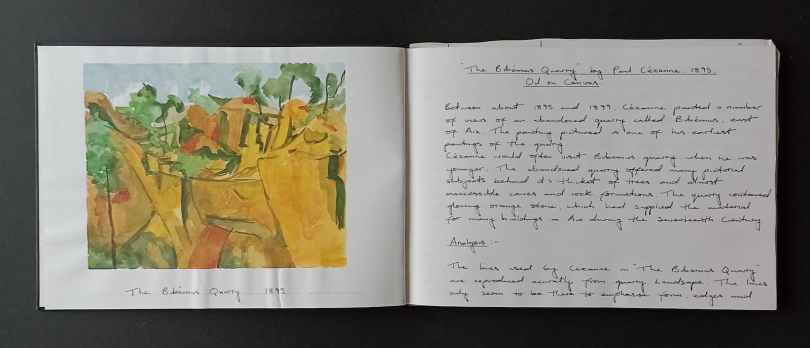 The Bibémus Quarry 1895
"The Bibémus Quarry" by Paul Cézanne 1895.
Oil on Canvas
Between about 1895 and 1899, Cézanne painted a number
of views of an abandoned quarry called Bibémus, east
of Aix. The painting pictured is one of his earliest
paintings of the quarry
Cézanne would often visit Bibémus quarry when he was
younger. The abandoned quarry offered many pictorial
subjects behind it's thicket of trees and almost
inaccessible caves and rock formations. The quarry contained
glowing orange stone, which had supplied the material
for many buildings in Aix during the Seventeenth Century
Analysis :-
The lines used by Cezanne in "The Bibémus Quarry"
are reproduced from quarry landscape. The lines
only seem to be there to emphasise form, edges and